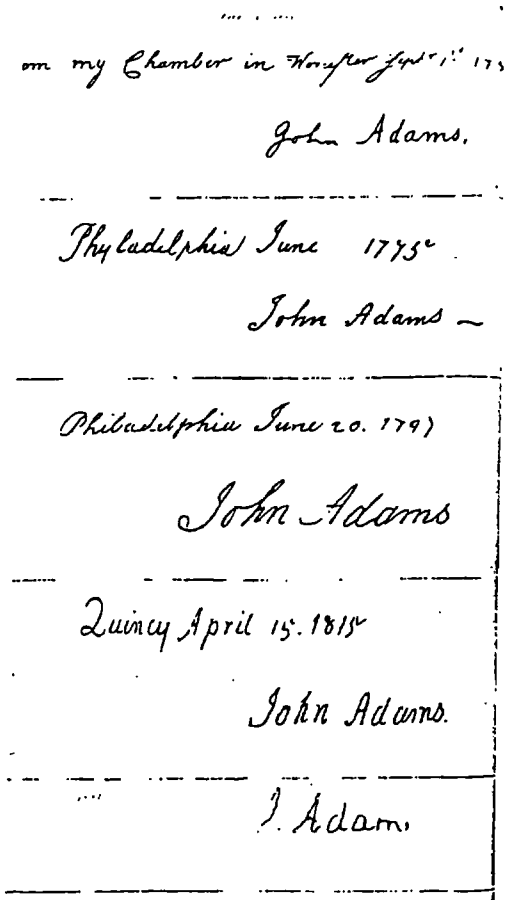 om my Chamber in Worcester Sept 1st 175
John Adams.
Phyladelphia June 1775
John Adams
Philadelphia June 20. 1797
John Adams
Quincy April 15. 1815
John Adams.
J. Adams